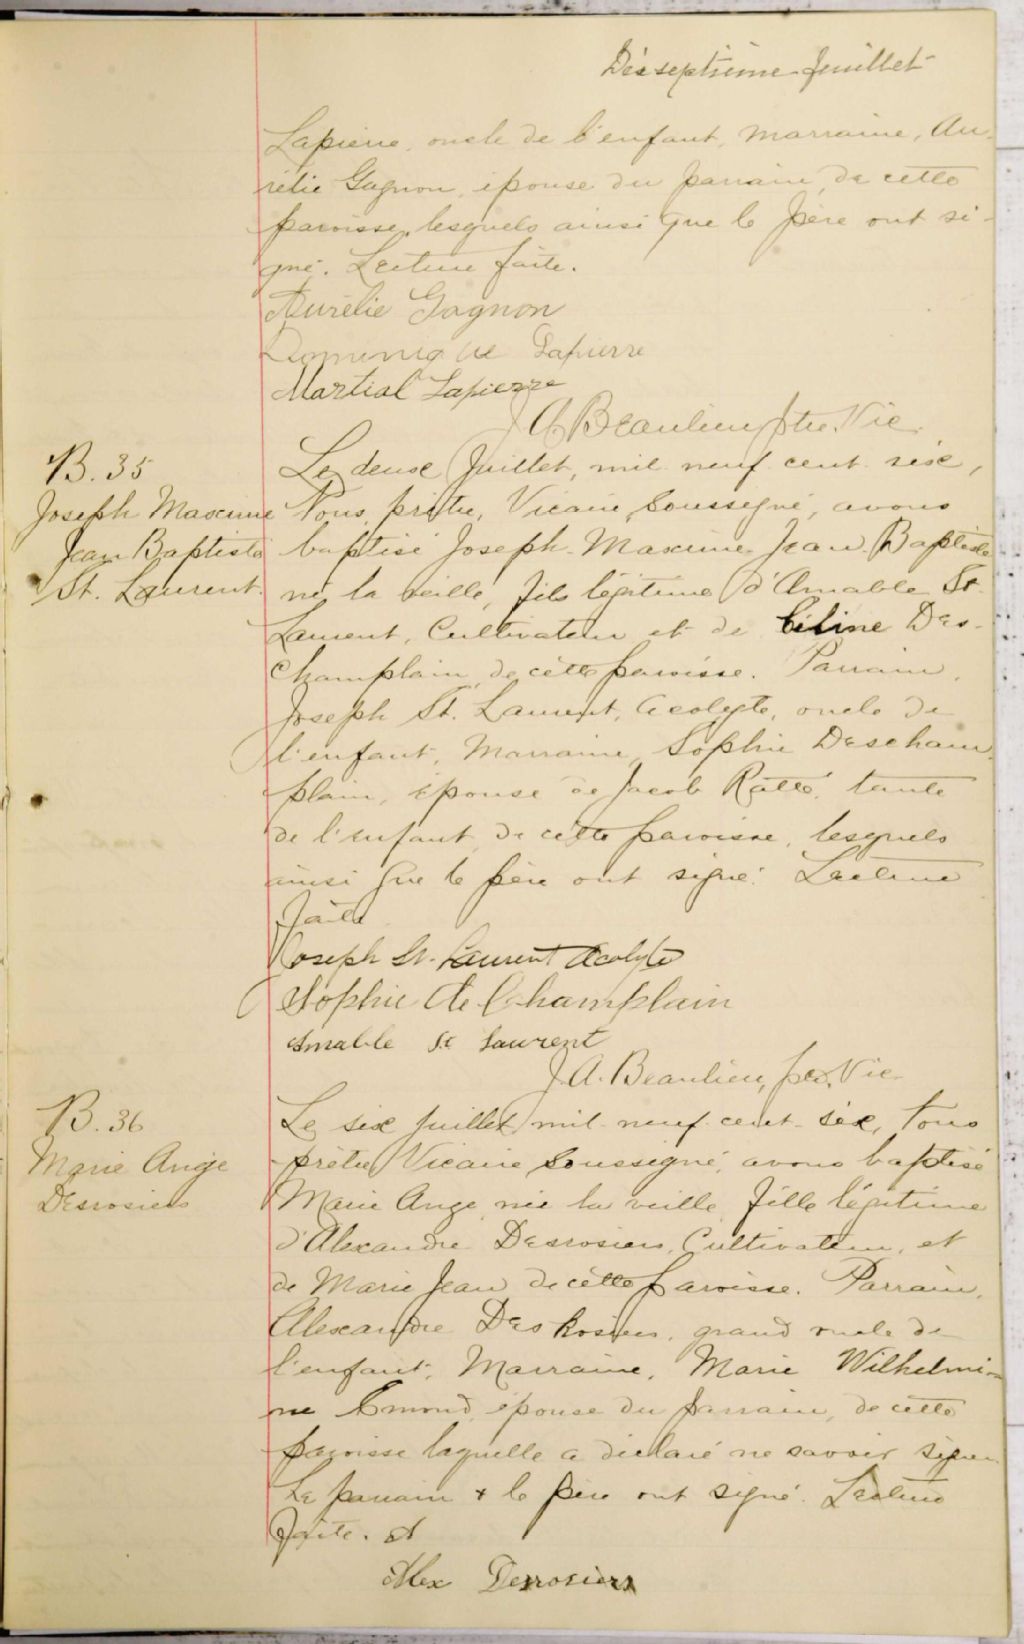 Dixseptième feuillet
Lapierre, oncle de l'enfant, marraine, Au-
rélie Gagnon, épouse du parrain, de cette
paroisse, lesquels ainsi que le père ont si-
gné. Lecture faite.
Aurélie Gagnon
Dominique Lapierre
Martial Lapierre
J. A. Beaulieu, Ptre. Vic.
B. 35
Joseph Maxime
Jean Baptiste
St. Laurent.
Le deux Juillet, mil neuf cent six,
Nous, prêtre, Vicaire, Soussigné, avons
baptisé Joseph Maxime Jean Baptiste
né la veille, fils légitime d'Amable St.
Laurent, Cultivateur et de Céline Des-
champlain, de cette paroisse. Parrain,
Joseph St. Laurent, Acolyte, oncle de
l'enfant, Marraine, Sophie Descham-
plain, épouse de Jacob Ratté, tante
de l'enfant, de cette paroisse, lesquels
ainsi que le père ont signé. Lecture
faite
Joseph St. Laurent Acolyte
Sophie de Champlain
Amable St Laurent
J. A. Beaulieu, Vic.
B. 36
Marie Ange
Desrosiers
Le six Juillet mil neuf cent six, Nous
prêtre Vicaire Soussigné, avons baptisé
Marie Ange, née la veille, fille légitime
d'Alexandre Desrosiers, Cultivateur, et
de Marie Jean de cette paroisse. Parrain,
Alexandre DesRosiers, grand oncle de
l'enfant, Marraine, Marie Wilhelmi-
ne Emond, épouse du parrain, de cette
paroisse laquelle a déclaré ne savoir signer
Le parrain & le père ont signé. Lecture
faite. A
Alex Desrosiers